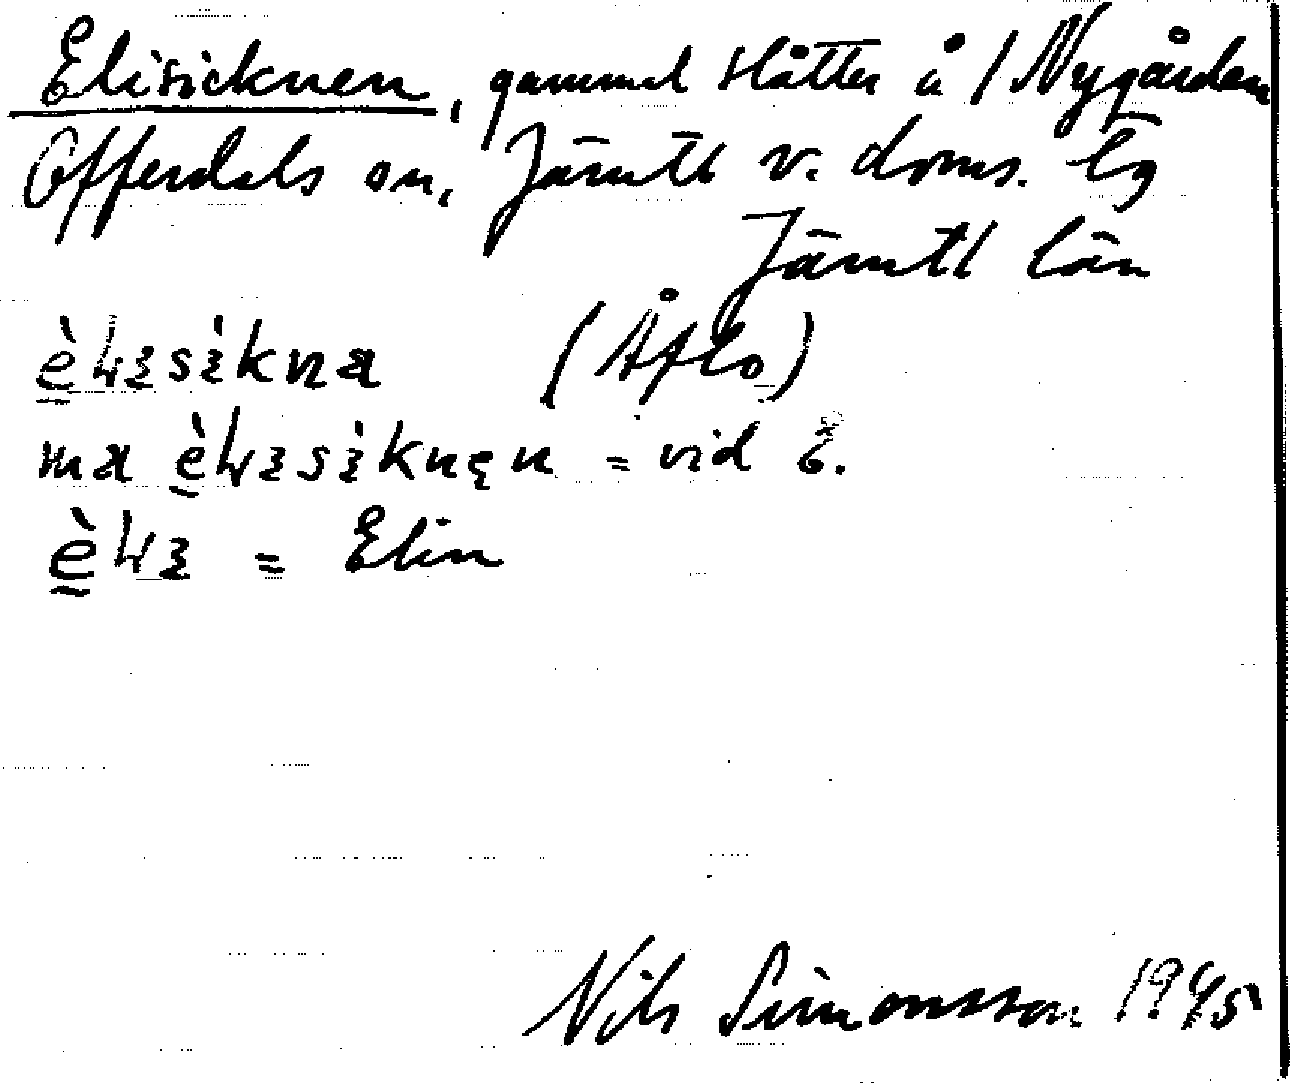 Elisicknen, gammel slåtter å 1 Nygården
Offerdals sn, Jämtl v. doms. lg
Jämtl län
èlisìkna (Åflo)
ma èlisìknen = vid E.
èli = Elin
Nils Simonsson 1945